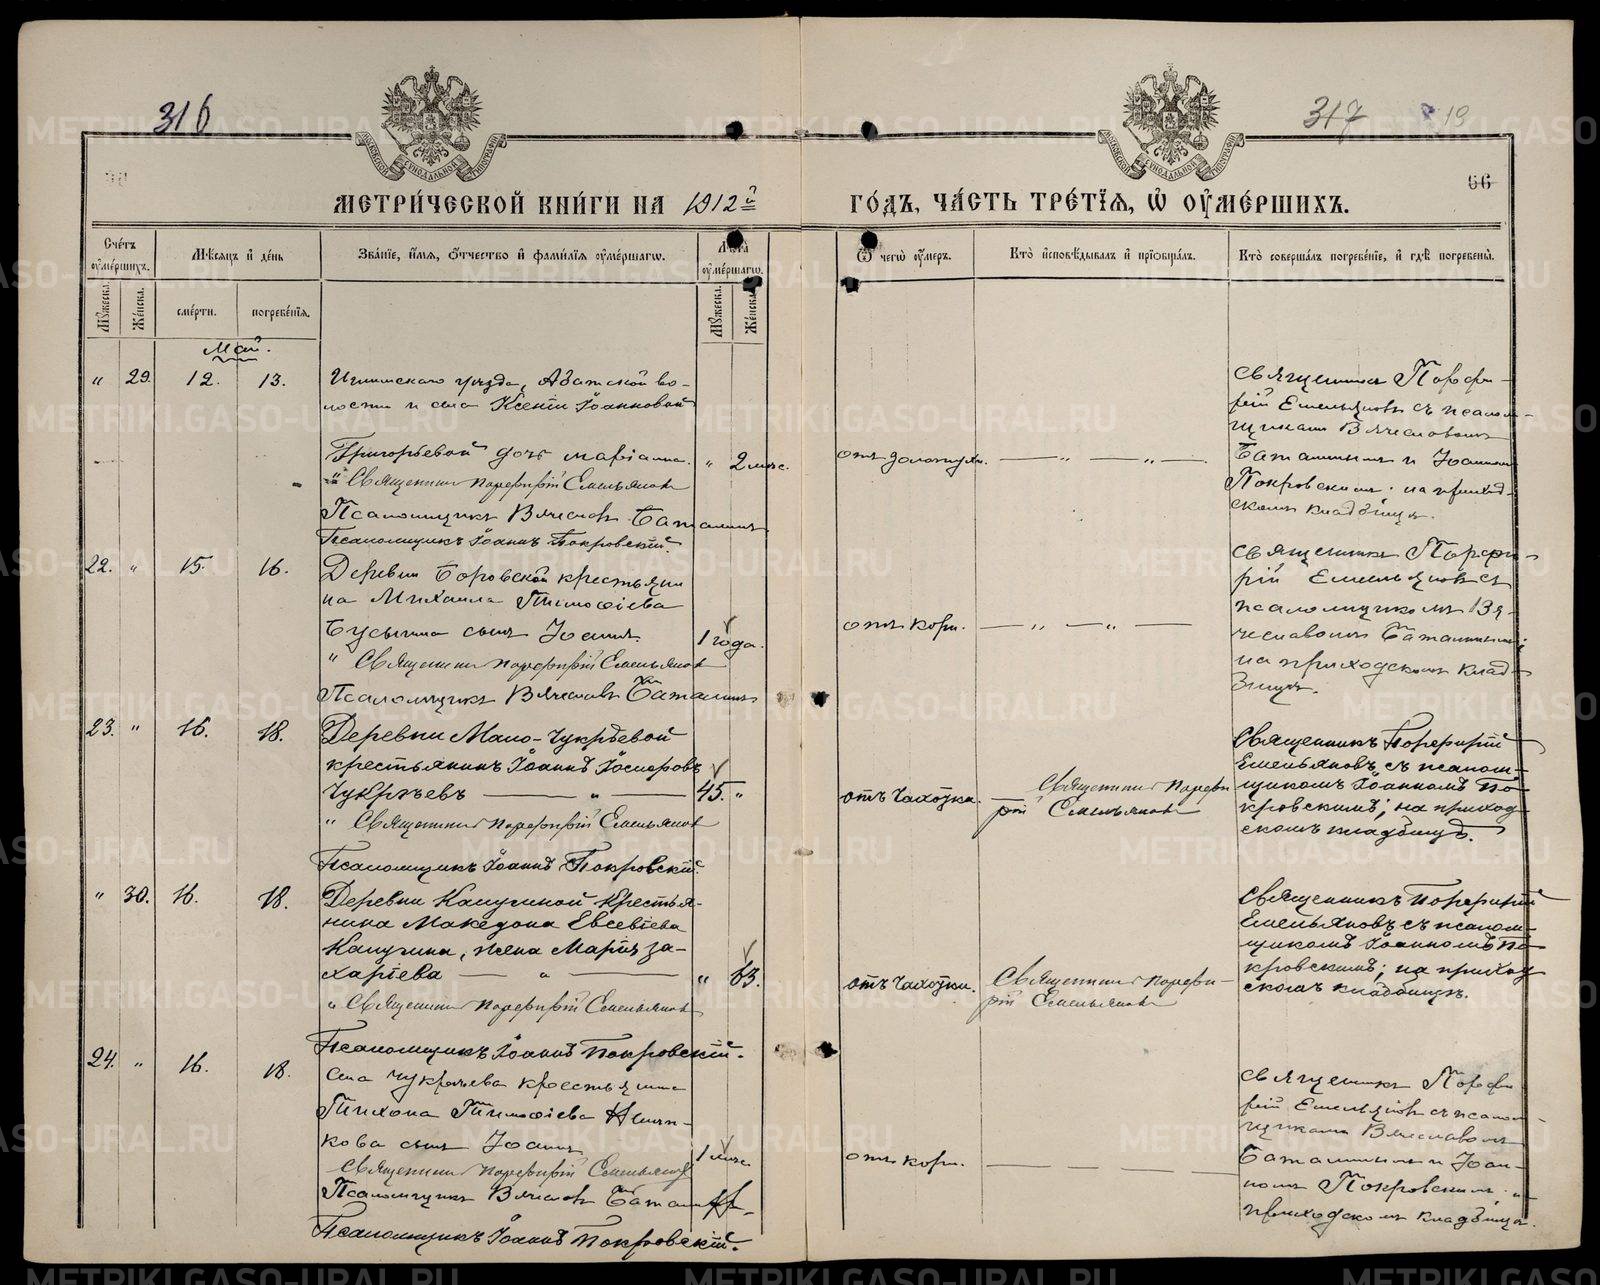 316
317
19
66
МЕТРИ́ЧЕСКОЙ КНИ́ГИ НА 1912й
ГО́ДЪ, ЧА́СТЬ ТРЕ́ТЇѦ, Ѡ҆ ОУ҆МЕ́РШИХЪ.
Сче́тъ оу҆ме́ршихъ.
Мѣ́сѧцъ и҆ де́нь
Зва́нїе, и҆́мѧ, ѻ҆́тчество и҆ фамилїѧ оу҆ме́ршагѡ.
Лѣ́та оу҆ме́ршагѡ.
Ѿ чегѡ̀ оу҆́меръ.
Кто̀ и҆сповѣ́дывалъ и҆ прїѡбща́лъ.
Кто̀ соверша́лъ погребе́нїе, и҆ гдѣ̀ погребены̀.
Мꙋ́жеска.
Же́нска.
сме́рти.
погребе́нїѧ.
Мꙋ́жеска.
Же́нска.
Май.
" 29. 12. 13.
Ишимскаго уѣзда, Абатской во-
лости и села Ксеніи Іоанновой
Григорьевой дочь Маріанна. " 2 мѣс.
" Священникъ Порфирій Емельяновъ
Псаломщикъ Вячеславъ Баталинъ
Псаломщикъ Іоаннъ Покровскій.
отъ золотухи.
Священникъ Порфи-
рій Емельяновъ съ псалом-
щиками Вячеславомъ
Баталинымъ и Іоанномъ
Покровскимъ; на приход-
скомъ кладбищѣ.
22. " 15. 16.
Деревни Боровской крестьяни-
на Михаила Тимоѳіева
Бусыгина сынъ Іоаннъ. 1 года.
" Священникъ Порфирій Емельяновъ
Псаломщикъ Вячеславъ Баталинъ
отъ кори.
Священникъ Порфи-
рій Емельяновъ съ
псаломщикомъ Вя-
чеславомъ Баталинымъ;
на приходскомъ клад-
бищѣ.
23. " 16. 18.
Деревни Мало-Чукрѣевой
крестьянинъ Іоаннъ
Чукрѣевъ " 45. "
" Священникъ Порфирій Емельяновъ
Псаломщикъ Іоаннъ Покровскій.
отъ чахотки.
Священникъ Порфи-
рій Емельяновъ
Священникъ Порфирій
Емельяновъ съ псалом-
щикомъ Іоанномъ По-
кровскимъ; на приход-
скомъ кладбищѣ.
" 30. 16. 18.
Деревни Калугиной крестья-
нина Македона Евсевіева
Калугина, жена Марія За-
харіева " " 63.
" Священникъ Порфирій Емельяновъ
Псаломщикъ Іоаннъ Покровскій.
отъ чахотки.
Священникъ Порфи-
рій Емельяновъ
Священникъ Порфирій
Емельяновъ съ псалом-
щикомъ Іоанномъ По-
кровскимъ; на приход-
скомъ кладбищѣ.
24. " 16. 18.
Села Чукрѣева крестьянина
Тихона Тимоѳіева
сынъ Іоаннъ 1 мѣс.
Священникъ Порфирій Емельяновъ
Псаломщикъ Вячеславъ Баталинъ
Псаломщикъ Іоаннъ Покровскій.
отъ кори.
Священникъ Порфи-
рій Емельяновъ съ псалом-
щиками Вячеславомъ
Баталинымъ и Іоан-
номъ Покровскимъ; на
приходскомъ кладбищѣ.
METRIKI.GASO-URAL.RU